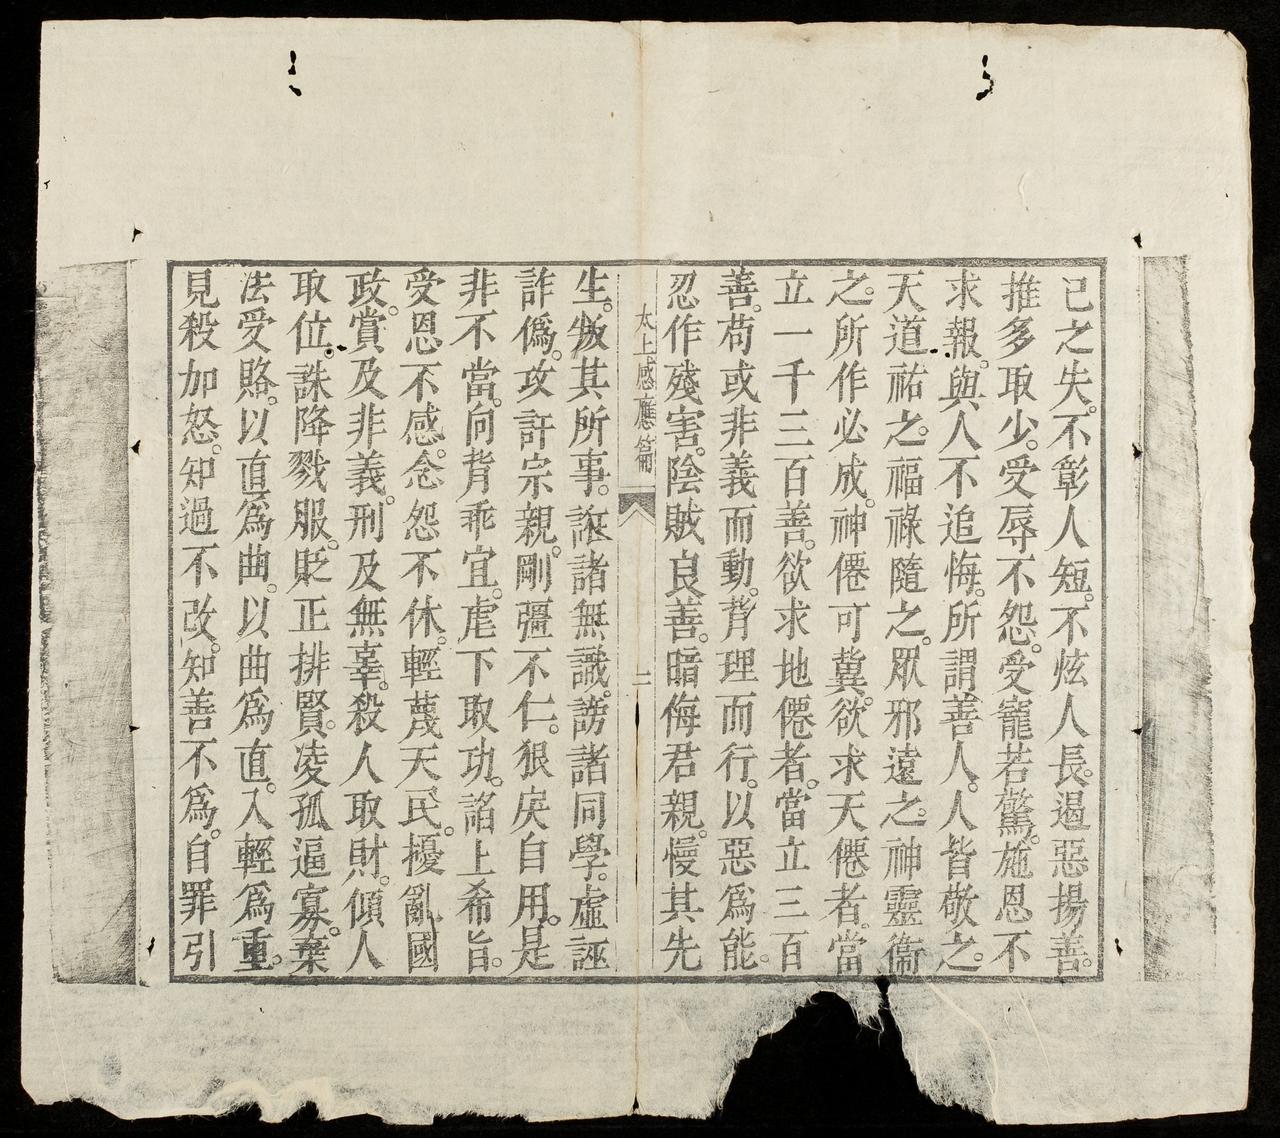 己之失。不彰人短。不炫人長。遏惡揚善。
推多取少。受辱不怨。受寵若驚。施恩不
求報。與人不追悔。所謂善人。人皆敬之。
天道祐之。福祿隨之。眾邪遠之。神靈衞
之。所作必成。神僊可冀。欲求天僊者。當
立一千三百善。欲求地僊者。當立三百
善。苟或非義而動。背理而行。以惡爲能。
忍作殘害。陰賊良善。暗侮君親。慢其先
太上感應篇 二
生。叛其所事。誑諸無識。謗諸同學。虛誣
詐僞。攻訐宗親。剛彊不仁。狠戾自用。是
非不當。向背乖宜。虐下取功。諂上希旨。
受恩不感。念怨不休。輕蔑天民。擾亂國
政。賞及非義。刑及無辜。殺人取財。傾人
取位。誅降戮服。貶正排賢。凌孤逼寡。棄
法受賂。以直爲曲。以曲爲直。入輕爲重。
見殺加怒。知過不改。知善不爲。自罪引